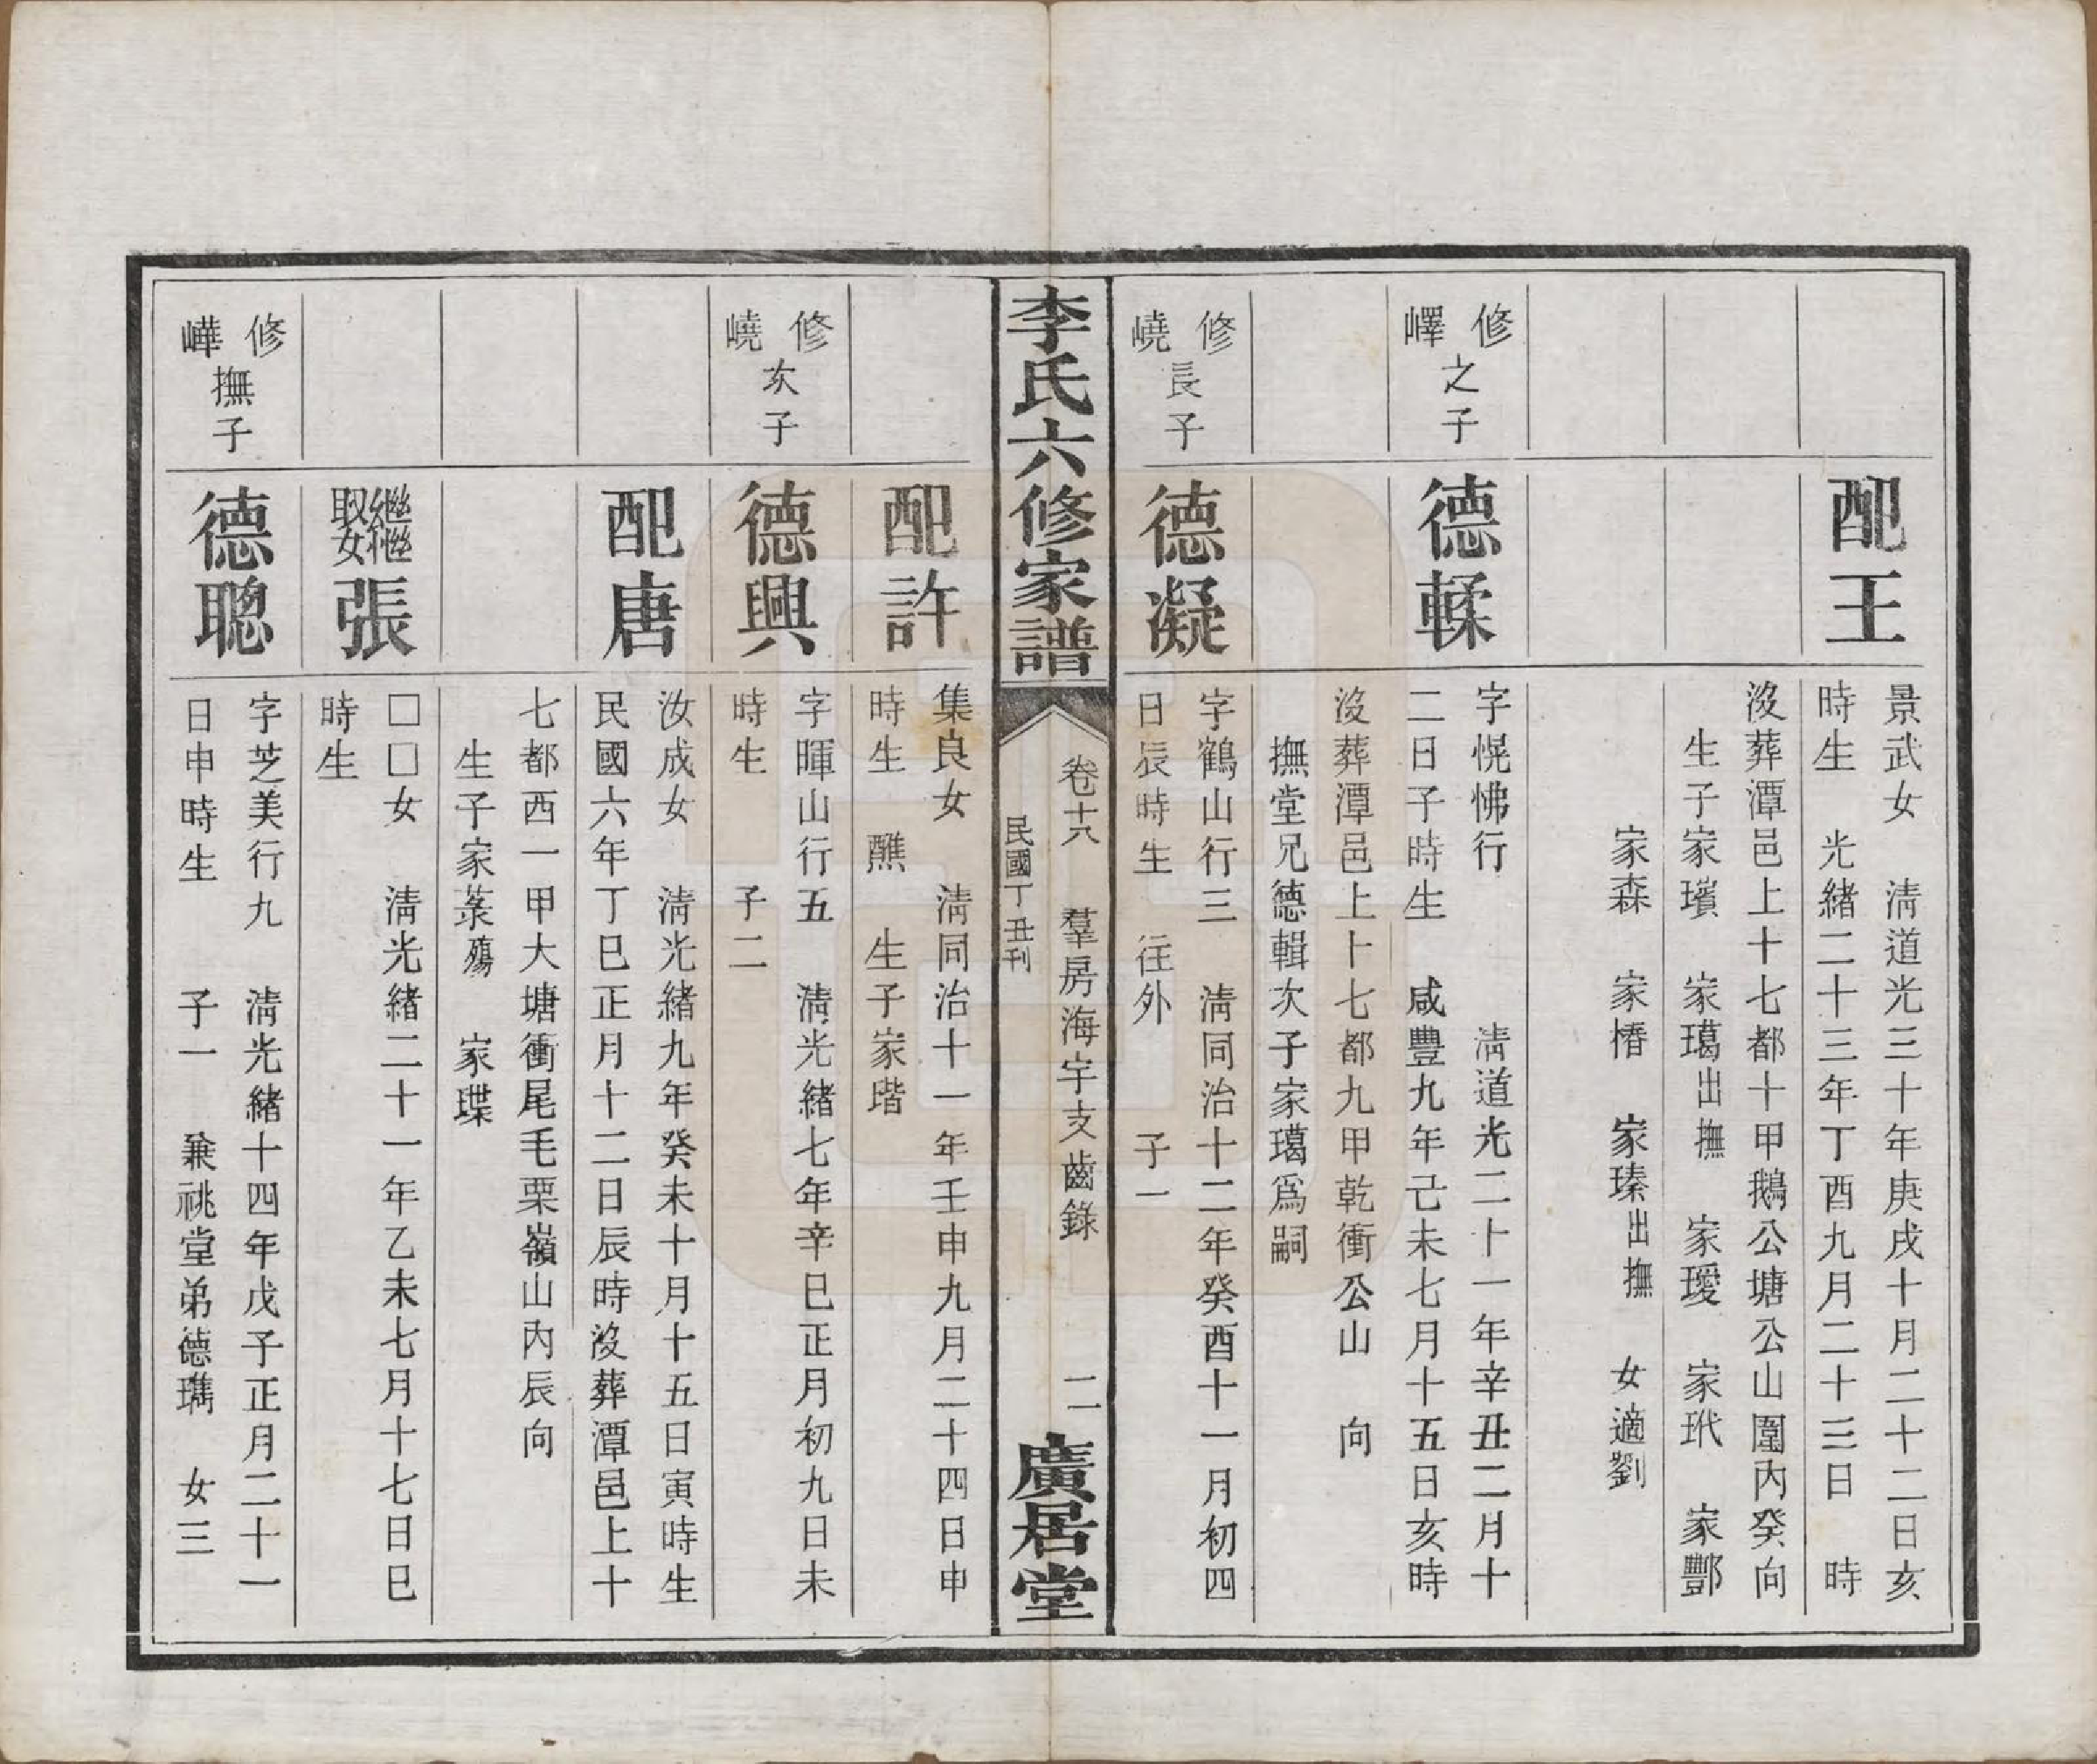 配王
景武女　淸道光三十年庚戌十月二十二日亥
時生　光緒二十三年丁酉九月二十三日　時
沒葬潭邑上十七都十甲鵝公塘公山圍內癸向
生子家璸　家璣出撫　家璦　家玳　家酆
家森　家椿　家瑧出撫　女適劉
修嶧之子
德輮
字愰怫行　　　淸道光二十一年辛丑二月十
二日子時生　咸豐九年己未七月十五日亥時
沒葬潭邑上十七都九甲乾衝公山　向
撫堂兄德輯次子家璣爲嗣
修嶢長子
德凝
字鶴山行三　淸同治十二年癸酉十一月初四
日辰時生　往外　　子一
李氏六修家譜
卷十六　羣房海宇支齒錄　　二
民國丁丑刊
廣居堂
配許
集良女　淸同治十一年壬申九月二十四日申
時生　醮　生子家瑎
修嶢次子
德興
字暉山行五　淸光緒七年辛巳正月初九日未
時生　　子二
配唐
汝成女　淸光緒九年癸未十月十五日寅時生
民國六年丁巳正月十二日辰時沒葬潭邑上十
七都西一甲大塘衝尾毛栗嶺山內辰向
生子家蒤殤　家瑈
繼娶繼女張
□□女　淸光緒二十一年乙未七月十七日巳
時生
修嶂撫子
德聰
字芝美行九　淸光緒十四年戊子正月二十一
日申時生　　子一　兼祧堂弟德瓗　女三